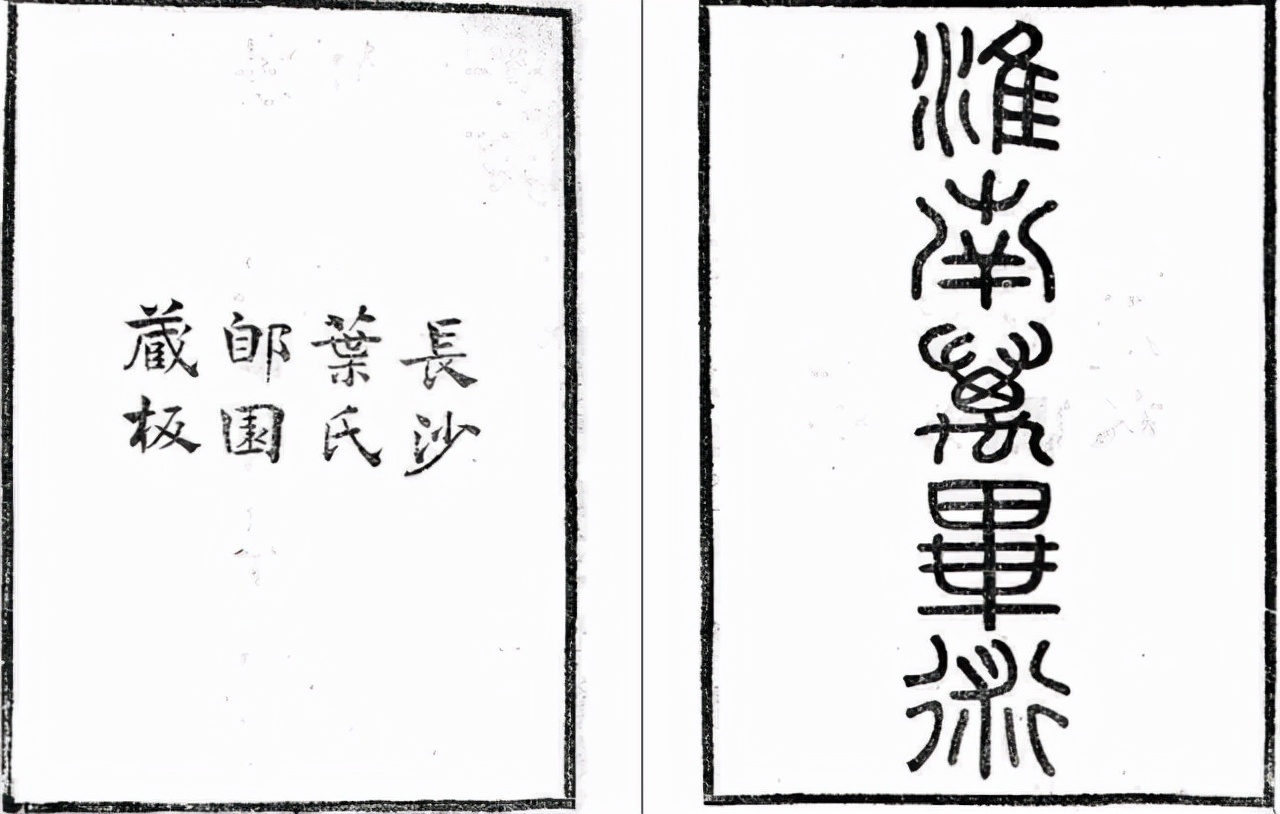 淮南萬畢術
長沙
葉氏
郋園
蔵板